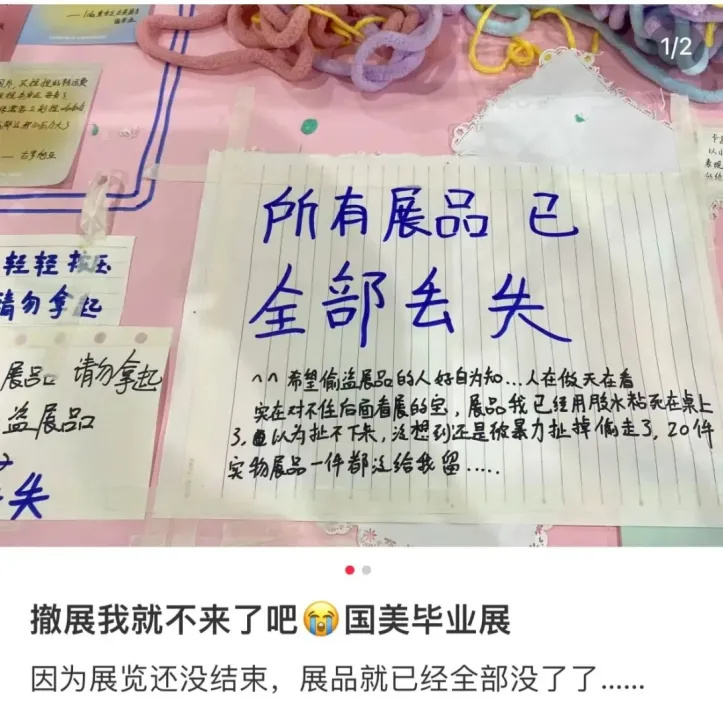 1/2
轻轻按压
请勿拿起
展品 请勿拿起
盗展品
失
所有展品 已
全部丢失
^^ 希望偷盗展品的人好自为知...人在做天在看
实在对不住后面看展的宝,展品我已经用胶水粘死在桌上
了,以为扯不下来,没想到还是被暴力扯掉偷走了,20件
实物展品一件都没给我留.....
撤展我就不来了吧😭国美毕业展
因为展览还没结束,展品就已经全部没了了......